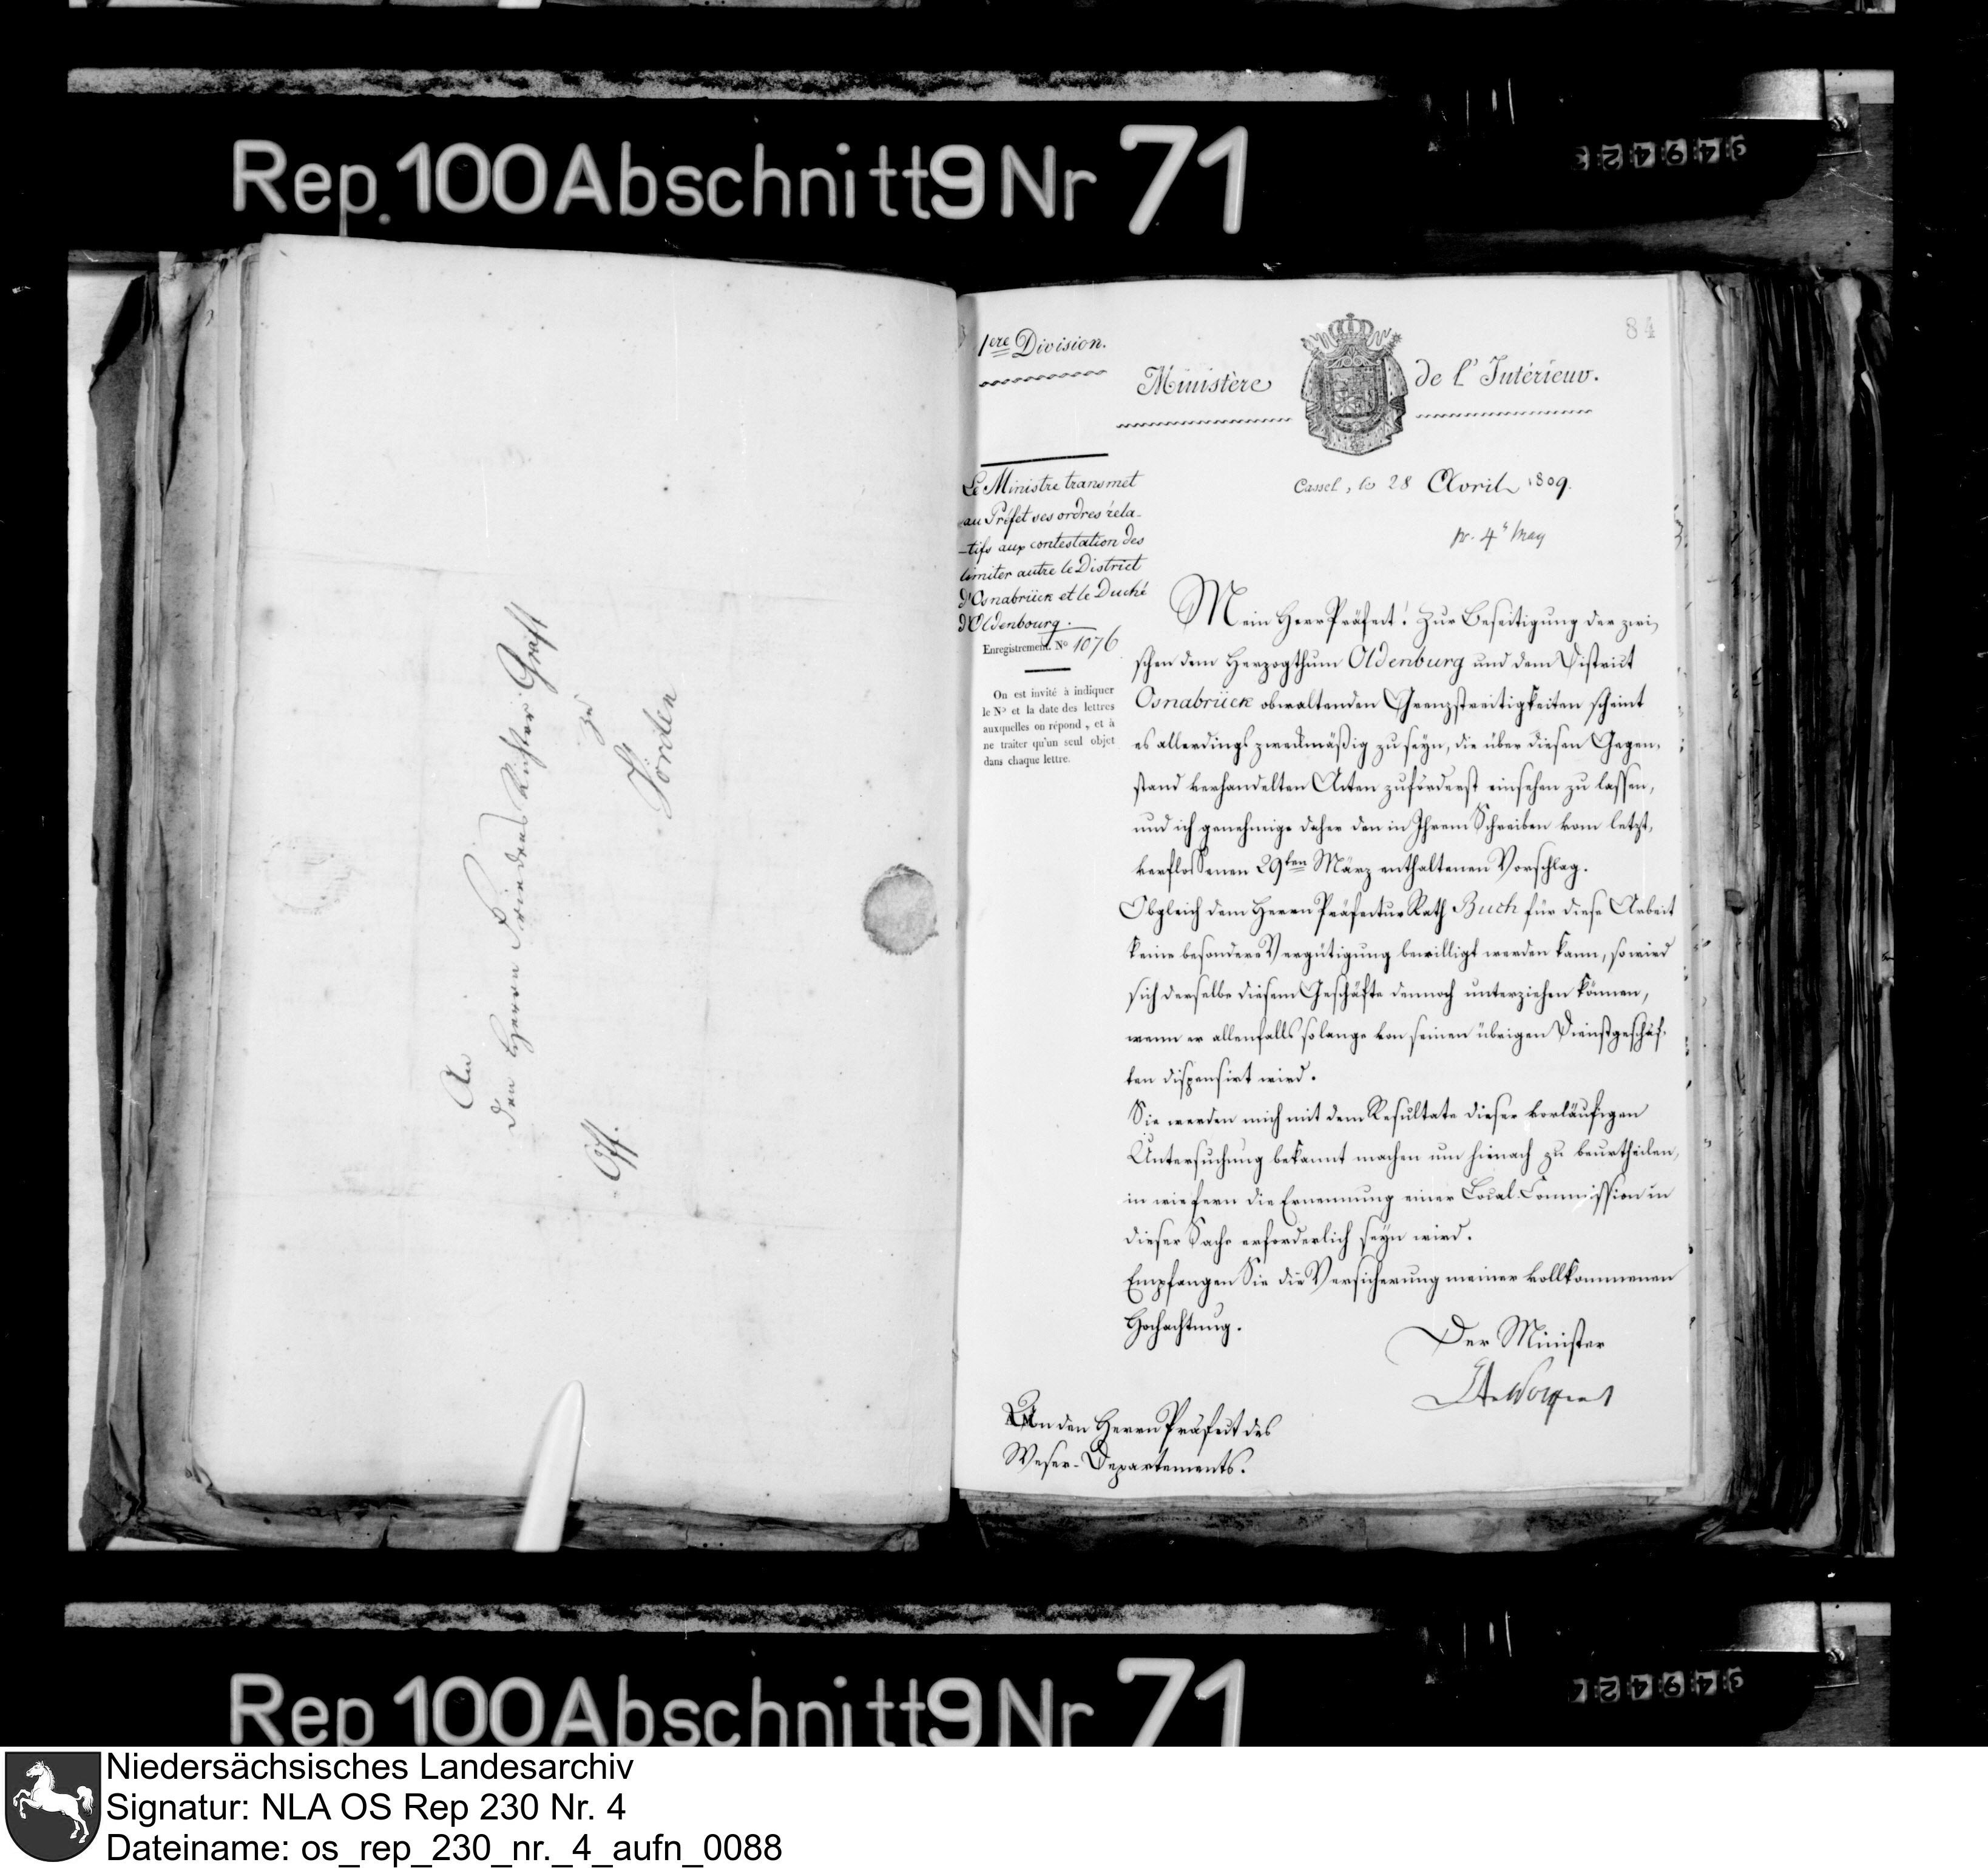 Rep. 100 Abschnitt 9 Nr 71
An
den Herrn Friedens Richter Gräff
zu
Vörden
Off.
84
1ere Division.
Ministère de l'Intérieur.
Cassel, le 28 Avril 1809.
pr. 4t May
Le Ministre transmet
au Préfet ses ordres réla-
-tifs aux contestation des
limiter autre le District
d'Osnabrück et le Duché
d'Oldenbourg.
Enregistrement. No 1076
On est invité à indiquer
le No et la date des lettres
auxquelles on répond, et à
ne traiter qu'un seul objet
dans chaque lettre.
Mein Herr Präfect! Zur Beseitigung der zwi,
schen dem Herzogthum Oldenburg und dem District
Osnabrück obwaltenden Grenzstreitigkeiten scheint
es allerdings zweckmäßig zu seyn, die über diesen Gegen,
stand verhandelten Acten zuförderst einsehen zu lassen,
und ich genehmige daher den in Ihrem Schreiben vom letzt,
verflossenen 29ten März enthaltenen Vorschlag.
Obgleich dem Herrn Präfectur Rath Buch für diese Arbeit
keine besondere Vergütigung bewilligt werden kann, so wird
sich derselbe diesem Geschäfte dennoch unterziehen können,
wenn er allenfalls solange von seinen übrigen Dienstgeschäf-
ten dispensirt wird.
Sie werden mich mit dem Resultate dieser vorläufigen
Untersuchung bekannt machen um hienach zu beurtheilen,
in wiefern die Ernennung einer Local-Commission in
dieser Sache erforderlich seyn wird.
Empfangen Sie die Versicherung meiner vollkommenen
Hochachtung.
Der Minister
An den Herrn Präfect des
Weser-Departements.
Rep 100 Abschnitt 9 Nr 71
Niedersächsisches Landesarchiv
Signatur: NLA OS Rep 230 Nr. 4
Dateiname: os_rep_230_nr._4_aufn_0088